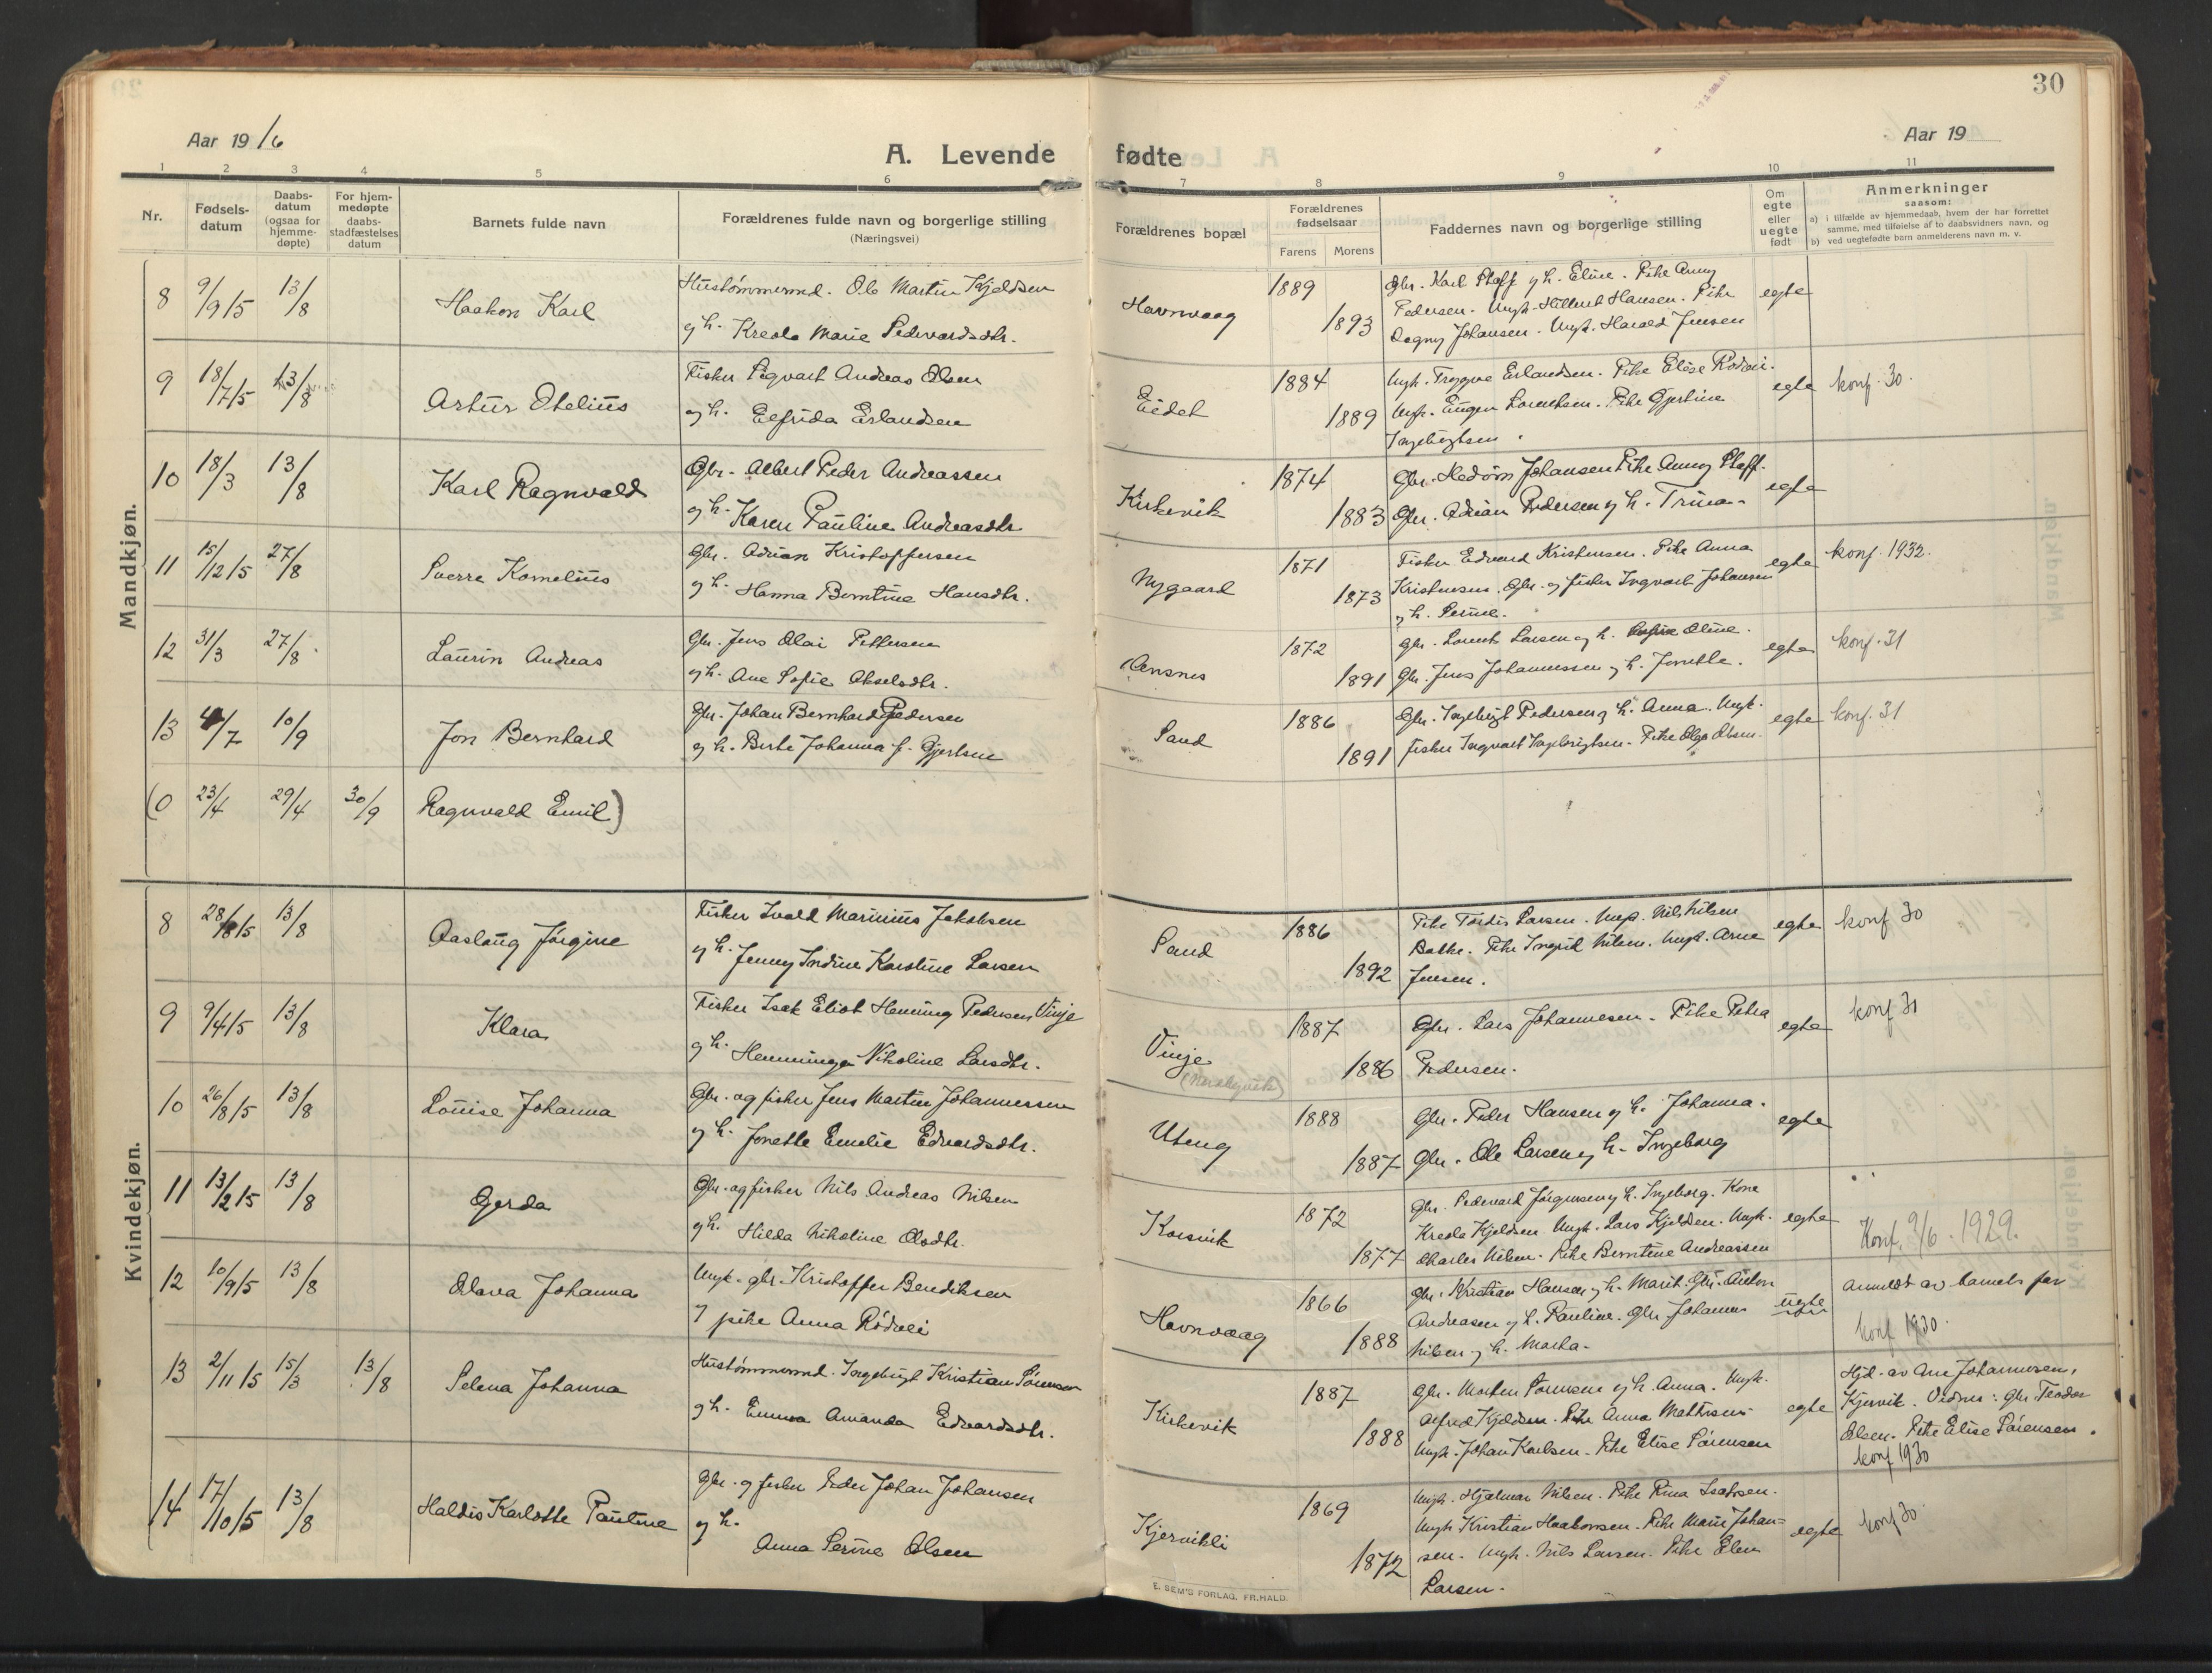 30
Aar 19 16
A. Levende fødte
Aar 19
1 2 3 4 5 6 7 8 9 10 11
Nr.
Fødsels-
datum
Daabs-
datum
(ogsaa for
hjemme-
døpte)
For hjem-
medøpte
daabs-
stadfæstelses
datum
Barnets fulde navn
Forældrenes fulde navn og borgerlige stilling
(Næringsvei)
Forældrenes bopæl
Forældrenes
fødselsaar
Farens Morens
Faddernes navn og borgerlige stilling
Om
egte
eller
uegte
født
Anmerkninger
saasom:
a) i tilfælde av hjemmedaab, hvem der har forrettet
samme, med tilføielse af to daabsvidners navn, og
b) ved uegtefødte barn anmelderens navn m. v.
Mandkjøn.
8 9/9 15 13/8 Haakon Karl Hustømmermd. Ole Martin Kjeldsen Havnvaag 1889 Gbr. Karl Staff og h. Eline. Pike Anny egte
og h. Kreola Marie Pedervardsdtr. 1893 Pedersen. Ungk. Hilbert Hansen. Pike
Dagny Johansen. Ungk. Harald Jensen
9 18/7 15 13/8 Artur Otelius Fisker Sigvart Andreas Olsen Eidet 1884 Ungk. Tryggve Erlandsen. Pike Elise Rödsei. egte konf. 30.
og h. Elfrida Erlandsen 1889 Ungk. Eugen Lorentsen. Pike Gjertine
Ingebrigtsen.
10 18/3 13/8 Karl Ragnvald Gbr. Albert Peder Andreassen Kirkevik 1874 Gbr. Hedøin Johansen Pike Anny Staff. egte
og h. Karen Pauline Andreasdtr. 1883 Gbr. Adrian Pedersen og h. Trina
11 15/12 15 27/8 Sverre Kornelius Gbr. Adrian Kristoffersen Nygaard 1871 Fisker Edvard Kristensen. Pike Anna egte konf. 1932.
og h. Hanna Berntine Hansdtr. 1873 Kristensen. Gbr. og fisker Ingvart Johansen
og h. Serine.
12 31/3 27/8 Laurin Andreas Gbr. Jens Olai Pettersen Aensnes 1872 Gbr. Lorents Larsen og h. Oline. egte konf. 31
og h. Ane Sofie Akselsdtr. 1891 Gbr. Jens Johannessen og h. Jonette.
13 4/7 10/9 Jon Bernhard Gbr. Johan Bernhard Pedersen Sand 1886 Gbr. Ingebrigt Pedersen og h. Anna. Ungk. egte konf. 31
og h. Berte Johanna f. Gjertsen 1891 fisker Ingvart Ingebrigtsen. Pike Olga Olsen.
(0 23/4 29/4 30/9 Ragnvald Emil)
Kvindekjøn.
8 28/8 15 13/8 Aaslaug Jørgine Fisker Ivald Marinius Jakobsen Sand 1886 Pike Tordis Larsen. Ungk. Nils Nilsen egte konf 30
og h. Jenny Indine Karstine Larsen 1892 Bakke. Pike Ingrid Nilsen. Ungk. Arne
Jensen.
9 9/4 15 13/8 Klara Fisker Isak Eliot Henning Pedersen Vinje Vinje 1887 Gbr. Lars Johannesen. Pike Petra egte konf 31
og h. Henninga Nikoline Larsdtr. 1886 Pedersen.
10 26/8 15 13/8 Louise Johanna Gbr. og fisker Jens Martin Johannessen Uteng 1888 Gbr. Peder Hansen og h. Johanna. egte
og h. Jonette Emelie Edvardsdtr. 1887 Gbr. Ole Larsen og h. Ingeborg
11 13/2 15 13/8 Gerda Gbr. og fisker Nils Andreas Nilsen Korsvik 1872 Gbr. Pedervard Jørgensen og h. Ingeborg. Kone egte Konf. 9/6. 1929.
og h. Hilda Nikoline Olsdtr. 1877 Kreola Kjeldsen. Ungk. Lars Kjeldsen. Ungk.
Charles Nilsen. Pike Berntine Andreassen
12 10/9 15 13/8 Olava Johanna Ungk. gbr. Kristoffer Bendiksen Havnvaag 1866 Gbr. Kristian Hansen og h. Marit. Gbr. Anton uegte anmeldt av barnets far
og pike Anna Rödsei 1888 Andreasen og h. Pauline. Gbr. Johannes konf 1930.
Nilsen og h. Marta.
13 2/11 15 15/3 13/8 Selena Johanna Hustømmermd. Ingebrigt Kristian Sörensen Kirkevik 1887 Gbr. Morten Sörensen og h. Anna. Ungk. egte Hjd. av Ane Johannesen,
og h. Emma Amanda Edvardsdtr. 1888 Alfred Kjeldsen. Pike Anna Mattisen Kjervik. Vidner: gbr. Teodor
Ungk. Johan Karlsen. Pike Elise Sörensen Olsen. Pike Elise Sörensen.
konf 1930
14 17/10 15 13/8 Haldis Karlotte Pauline Gbr. og fisker Peder Johan Johansen Kjervikli 1869 Ungk. Hjalmar Nilsen. Pike Rina Isaksen. egte konf 30.
og h. Anna Serine Olsen 1872 Ungk Kristian Haakonsen. Pike Marie Johan-
sen. Ungk. Nils Larsen. Pike Elen
Larsen.
E. SEM'S FORLAG, FR.HALD.